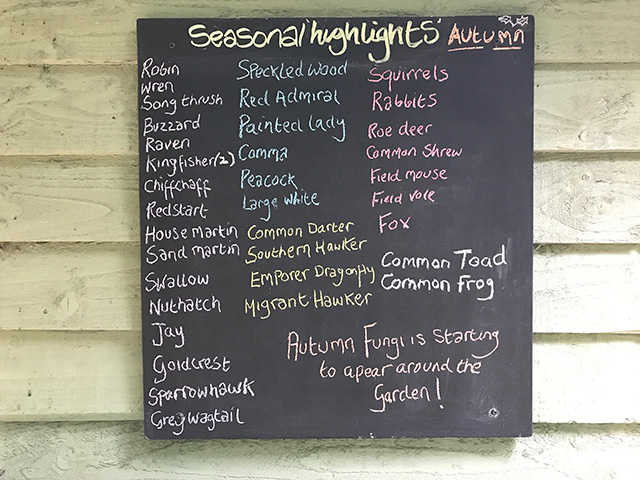 Seasonal 'highlights' Autumn
Robin
Wren
Song thrush
Buzzard
Raven
Kingfisher(2)
Chiffchaff
Redstart
House martin
Sand martin
Swallow
Nuthatch
Jay
Goldcrest
Sparrowhawk
Grey wagtail
Speckled wood
Red Admiral
Painted lady
Comma
Peacock
Large white
Common Darter
Southern Hawker
Emporer Dragonfly
Migrant Hawker
Squirrels
Rabbits
Roe deer
Common Shrew
Field mouse
Field vole
Fox
Common Toad
Common Frog
Autumn Fungi is starting
to apear around the
Garden!